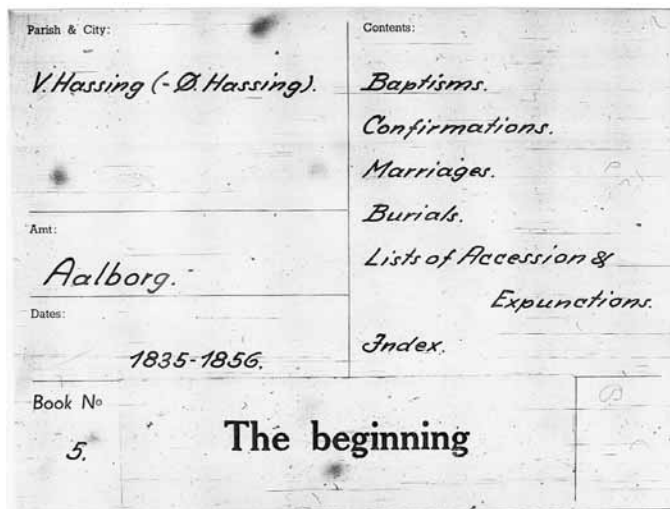 Parish & City:
V. Hassing (- Ø. Hassing).
Amt:
Aalborg.
Dates:
1835-1856.
Contents:
Baptisms.
Confirmations.
Marriages.
Burials.
Lists of Accession &
Expunctions.
Index.
Book No
5.
The beginning